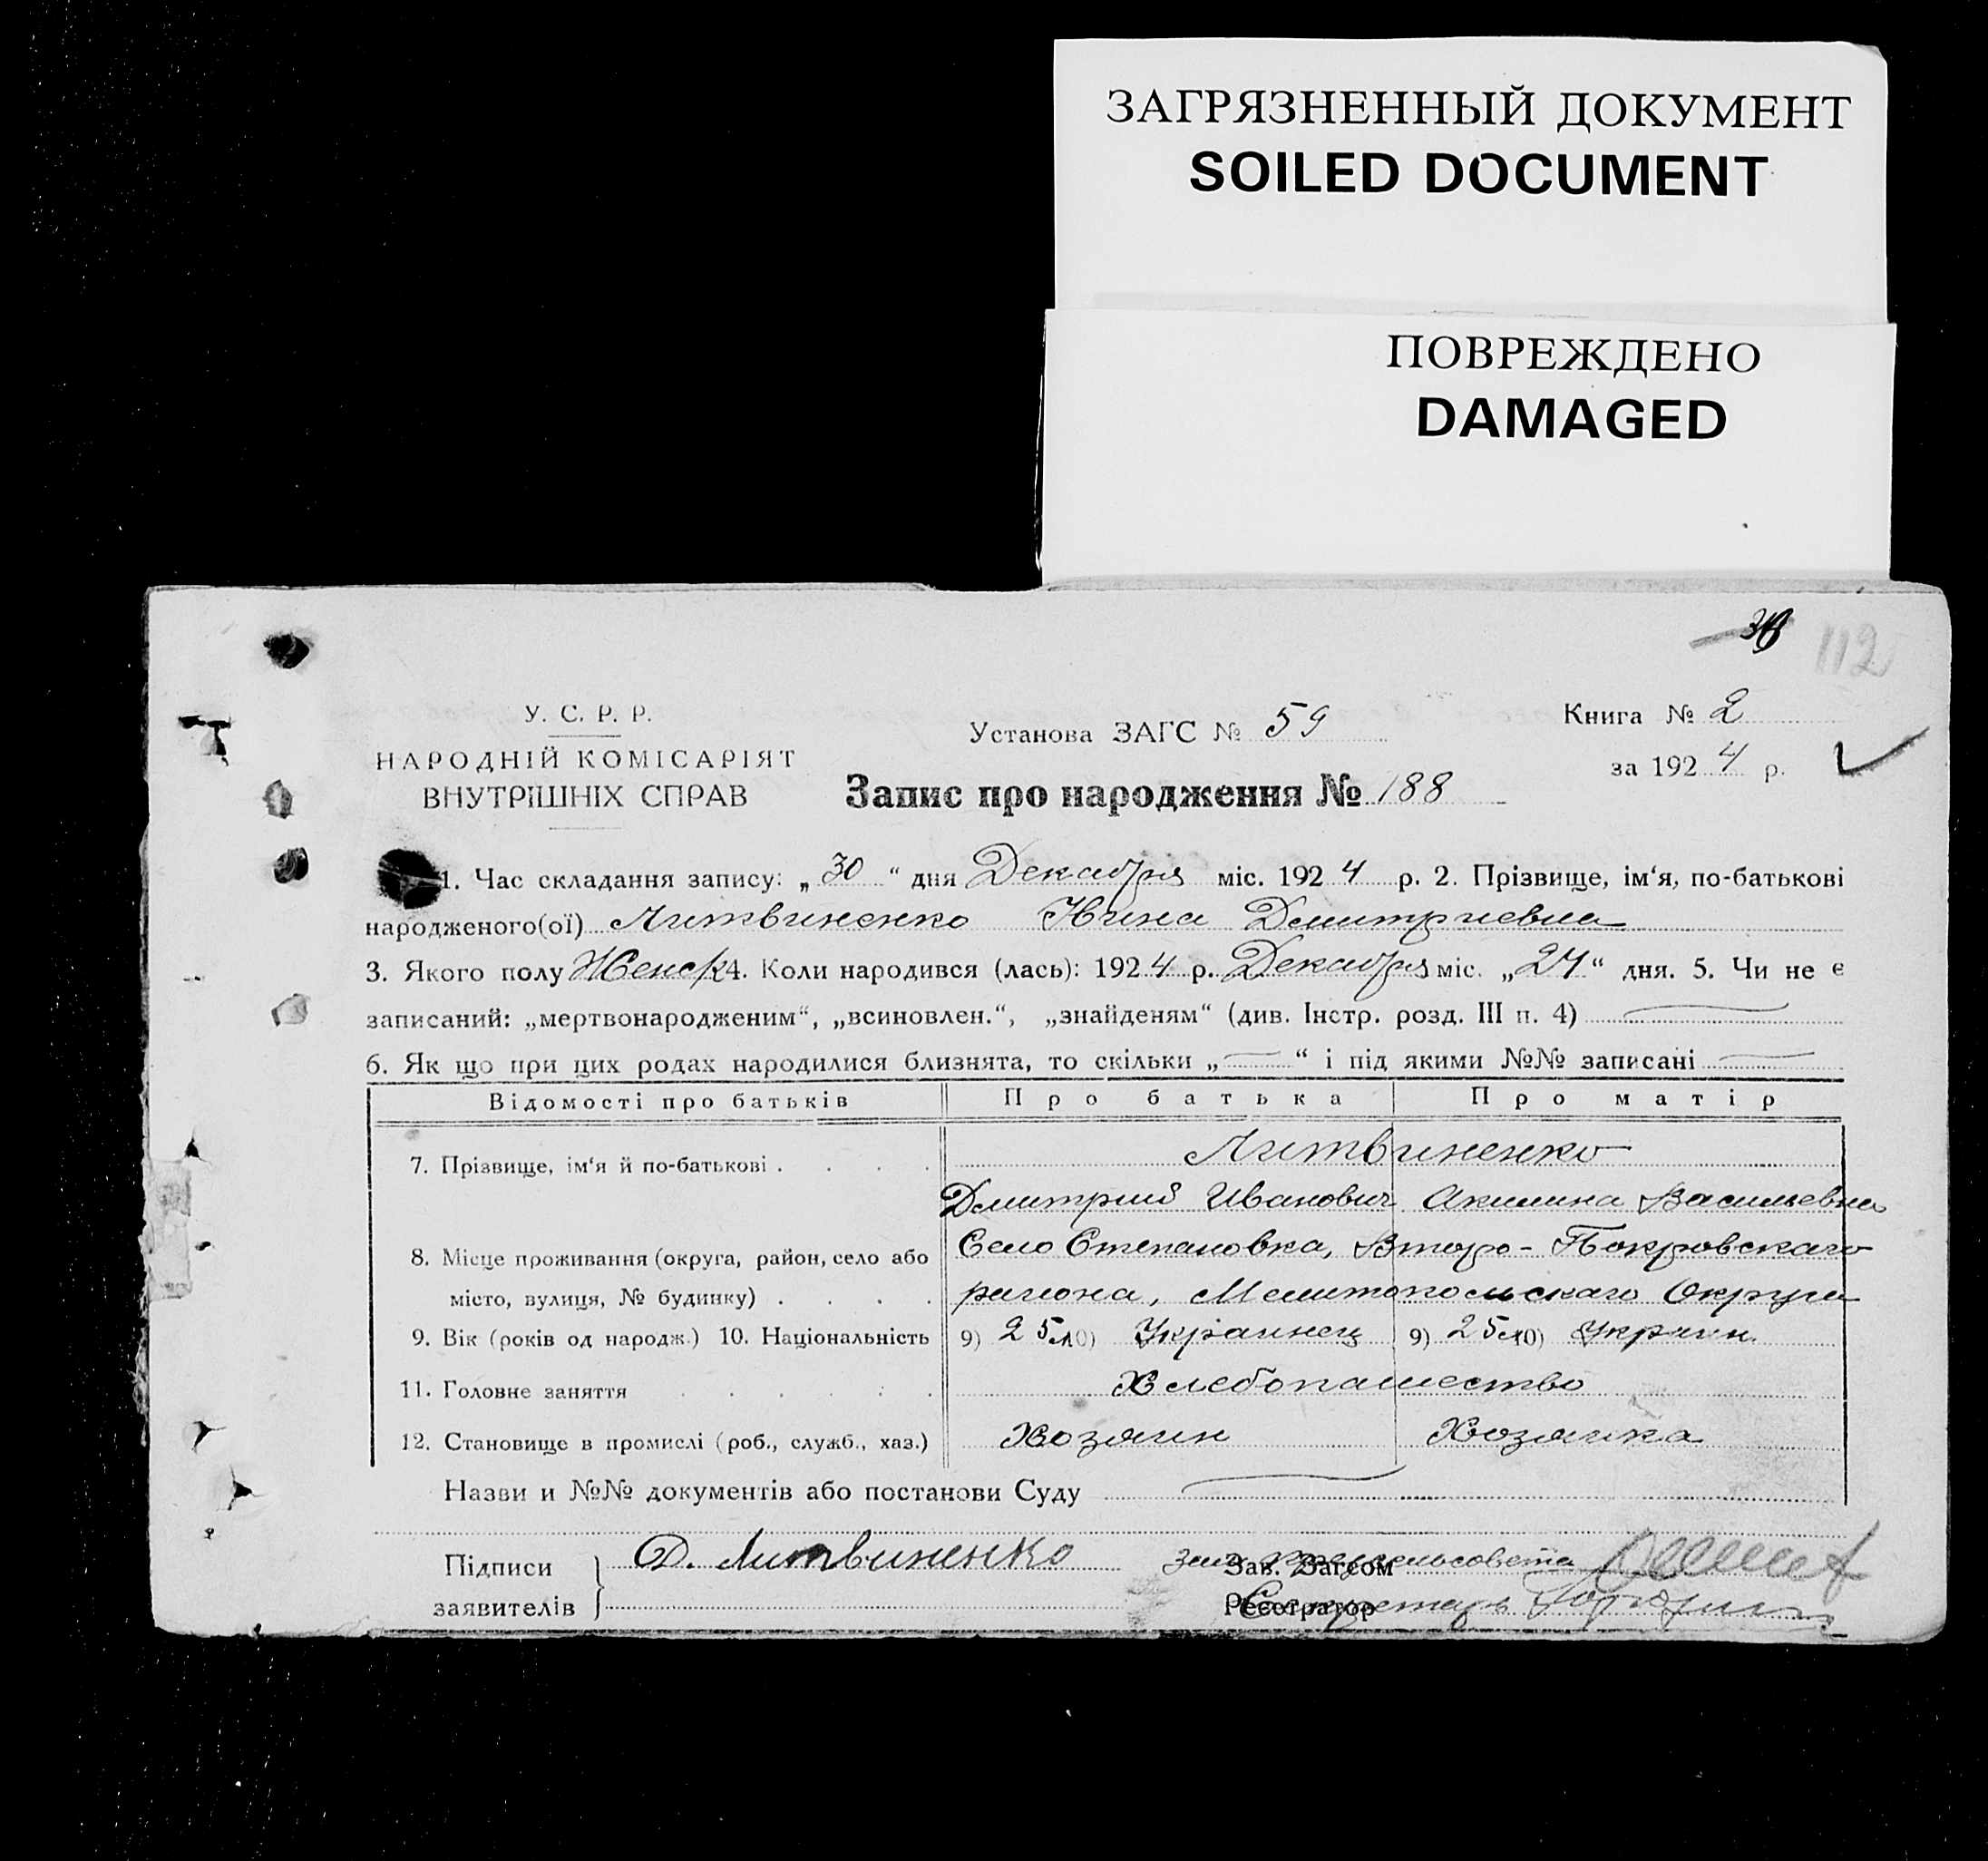 ЗАГРЯЗНЕННЫЙ ДОКУМЕНТ
SOILED DOCUMENT
ПОВРЕЖДЕНО
DAMAGED
112
У. С. Р. Р.
НАРОДНІЙ КОМІСАРІЯТ
ВНУТРІШНІХ СПРАВ
Установа ЗАГС № 59
Книга № 2
за 1924 р.
Запис про народження № 188
1. Час складання запису: „30“ дня Декабря міс. 1924 р. 2. Прізвище, ім‘я, по-батькові
народженого(ої) Литвиненко Нина Дмитриевна
3. Якого полу Женск 4. Коли народився (лась): 1924 р. Декабря міс. „24“ дня. 5. Чи не є
записаний: „мертвонародженим“, „всиновлен.“, „знайденям“ (див. Інстр. розд. III п. 4)
6. Як що при цих родах народилися близнята, то скільки „ “ і під якими №№ записані
Відомості про батьків Про батька Про матір
7. Прізвище, ім‘я й по-батькові . . . . Литвиненко
Дмитрий Иванович Акилина Васильевна
8. Місце проживання (округа, район, село або Село Степановка, Второ-Покровскаго
місто, вулиця, № будинку) . . . . района, Мелитопольскаго Округа
9. Вік (років од народж.) 10. Національність 9) 25 л 10) Украинец 9) 25 л 10) Украин.
11. Головне заняття . . . . . . Хлебопашество
12. Становище в промислі (роб., служб., хаз.) Хозяин Хозяйка
Назви и №№ документів або постанови Суду
Підписи Д. Литвиненко Зав. Загсом сельсовета
заявителів Реєстратор Секретарь